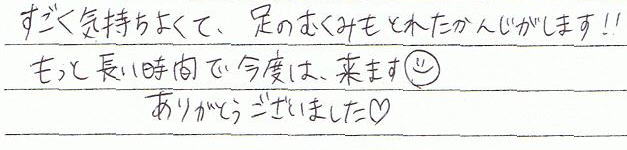 すごく気持ちよくて、足のむくみもとれたかんじがします!!
もっと長い時間で今度は、来ます☺
ありがとうございました♡